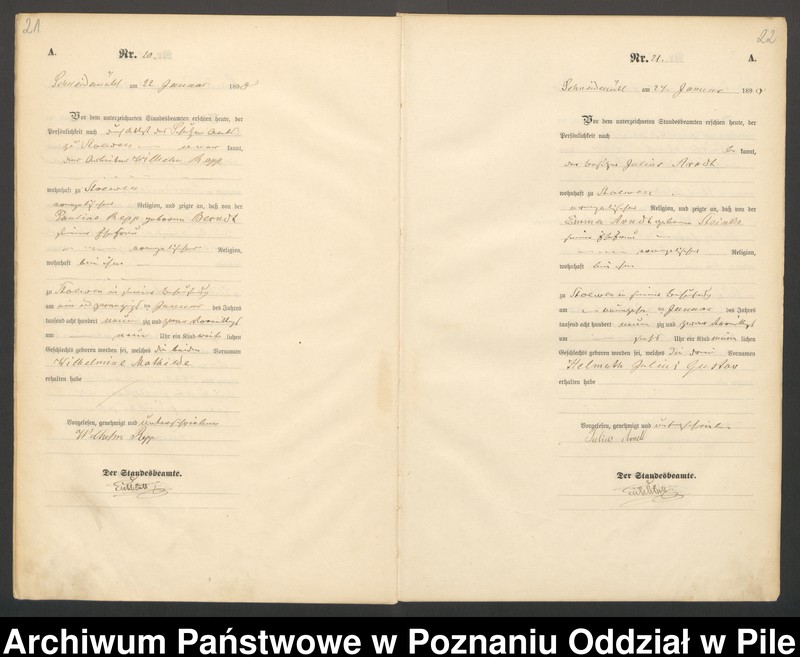 21
A.
Nr. 20.
Schneidemühl am 22 Januar 1890
Vor dem unterzeichneten Standesbeamten erschien heute, der
Persönlichkeit nach durch Attest des Schulzen Amts
zu Stoewen kannt,
der Arbeiter Wilhelm Repp
wohnhaft zu Stoewen
evangelischer Religion, und zeigte an, daß von der
Pauline Repp geborene Berndt
seiner Ehefrau
evangelischer Religion,
wohnhaft bei ihm
zu Stoewen in seiner Behausung
am ein und zwanzigsten Januar des Jahres
tausend acht hundert neunzig und zwar Vormittags
um neun Uhr ein Kind weiblichen
Geschlechts geboren worden sei, welches die beiden Vornamen
Wilhelmine Mathilde
erhalten habe
Vorgelesen, genehmigt und unterschrieben
Wilhelm Repp
Der Standesbeamte.
22
Nr. 21.
A.
Schneidemühl am 24 Januar 1890
Vor dem unterzeichneten Standesbeamten erschien heute, der
Persönlichkeit nach
be kannt,
der Besitzer Julius Arndt
wohnhaft zu Stoewen
evangelischer Religion, und zeigte an, daß von der
Emma Arndt geborene
seiner Ehefrau
evangelischer Religion,
wohnhaft bei ihm
zu Stoewen in seiner Behausung
am Januar des Jahres
tausend acht hundert neunzig und zwar Vormittags
um sechs Uhr ein Kind männlichen
Geschlechts geboren worden sei, welches die drei Vornamen
Helmuth Julius Gustav
erhalten habe
Vorgelesen, genehmigt und unterschrieben
Julius Arndt
Der Standesbeamte.
Archiwum Państwowe w Poznaniu Oddział w Pile